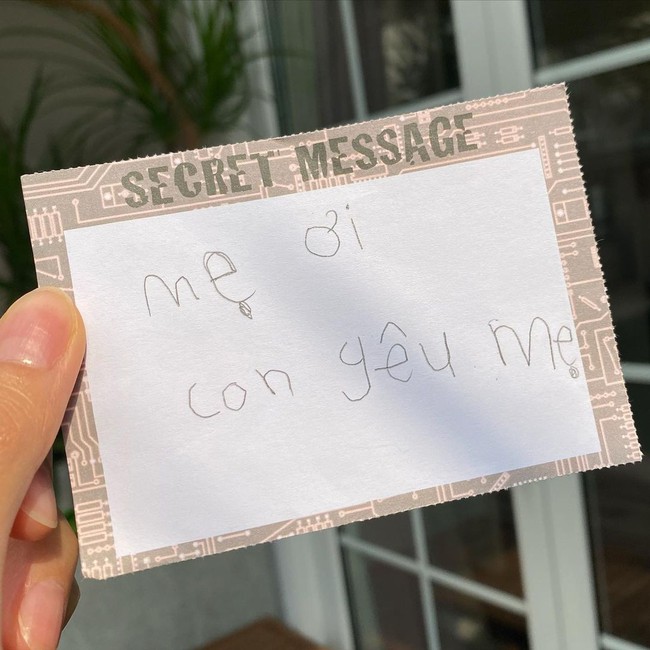 SECRET MESSAGE
mẹ ơi
con yêu mẹ